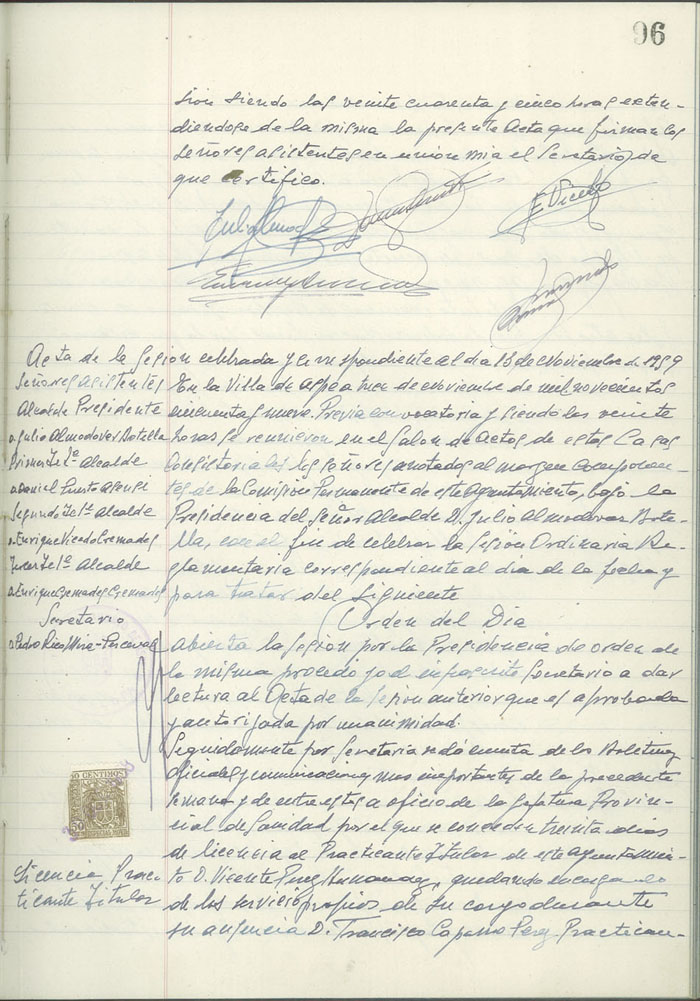 96
sion siendo las veinte cuarenta y cinco horas exten-
diendose de la misma la presente Acta que firman los
señores asistentes en union mia el Secretario, de
que certifico.
E. Vicedo
Acta de la Sesion celebrada y correspondiente al dia 13 de Noviembre de 1959
Señores asistentes
Alcalde Presidente
D. Julio Almodovar Botella
Primer Tete Alcalde
D. Daniel Puerto Asensi
Segundo Tete Alcalde
D. Enrique Vicedo Cremades
Tercer Tete Alcalde
D. Enrique Cremades Cremades
Secretario
D. Pedro Rico Mira-Perceval
En la Villa de Aspe a trece de Noviembre de mil novecientos
cincuenta y nueve. Previa convocatoria y siendo las veinte
horas se reunieron en el Salon de Actos de estas Casas
Consistoriales los señores anotados al margen componen-
tes de la Comision Permanente de este Ayuntamiento, bajo la
Presidencia del Señor Alcalde D. Julio Almodovar Bote-
lla, con el fin de celebrar la Sesion Ordinaria Re-
glamentaria correspondiente al dia de la fecha y
para tratar del siguiente
Orden del Dia
Abierta la Sesion por la Presidencia de orden de
la misma procedo yo el infrascrito Secretario a dar
lectura al Acta de la Sesion anterior que es aprobada
y autorizada por unanimidad.
Seguidamente por Secretaria se dá cuenta de los Boletines
oficiales y comunicaciones mas importantes de la precedente
semana y de entre estas a oficio de la Jefatura Provin-
cial de Sanidad por el que se conceden treinta dias
de licencia al Practicante Titular de este Ayuntamien-
to D. Vicente Perez Hernandez, quedando encargado
de los servicios propios de su cargo durante
su ausencia D. Francisco Caparros Perez Practican-
50 CENTIMOS
50
Licencia Prac-
ticante Titular